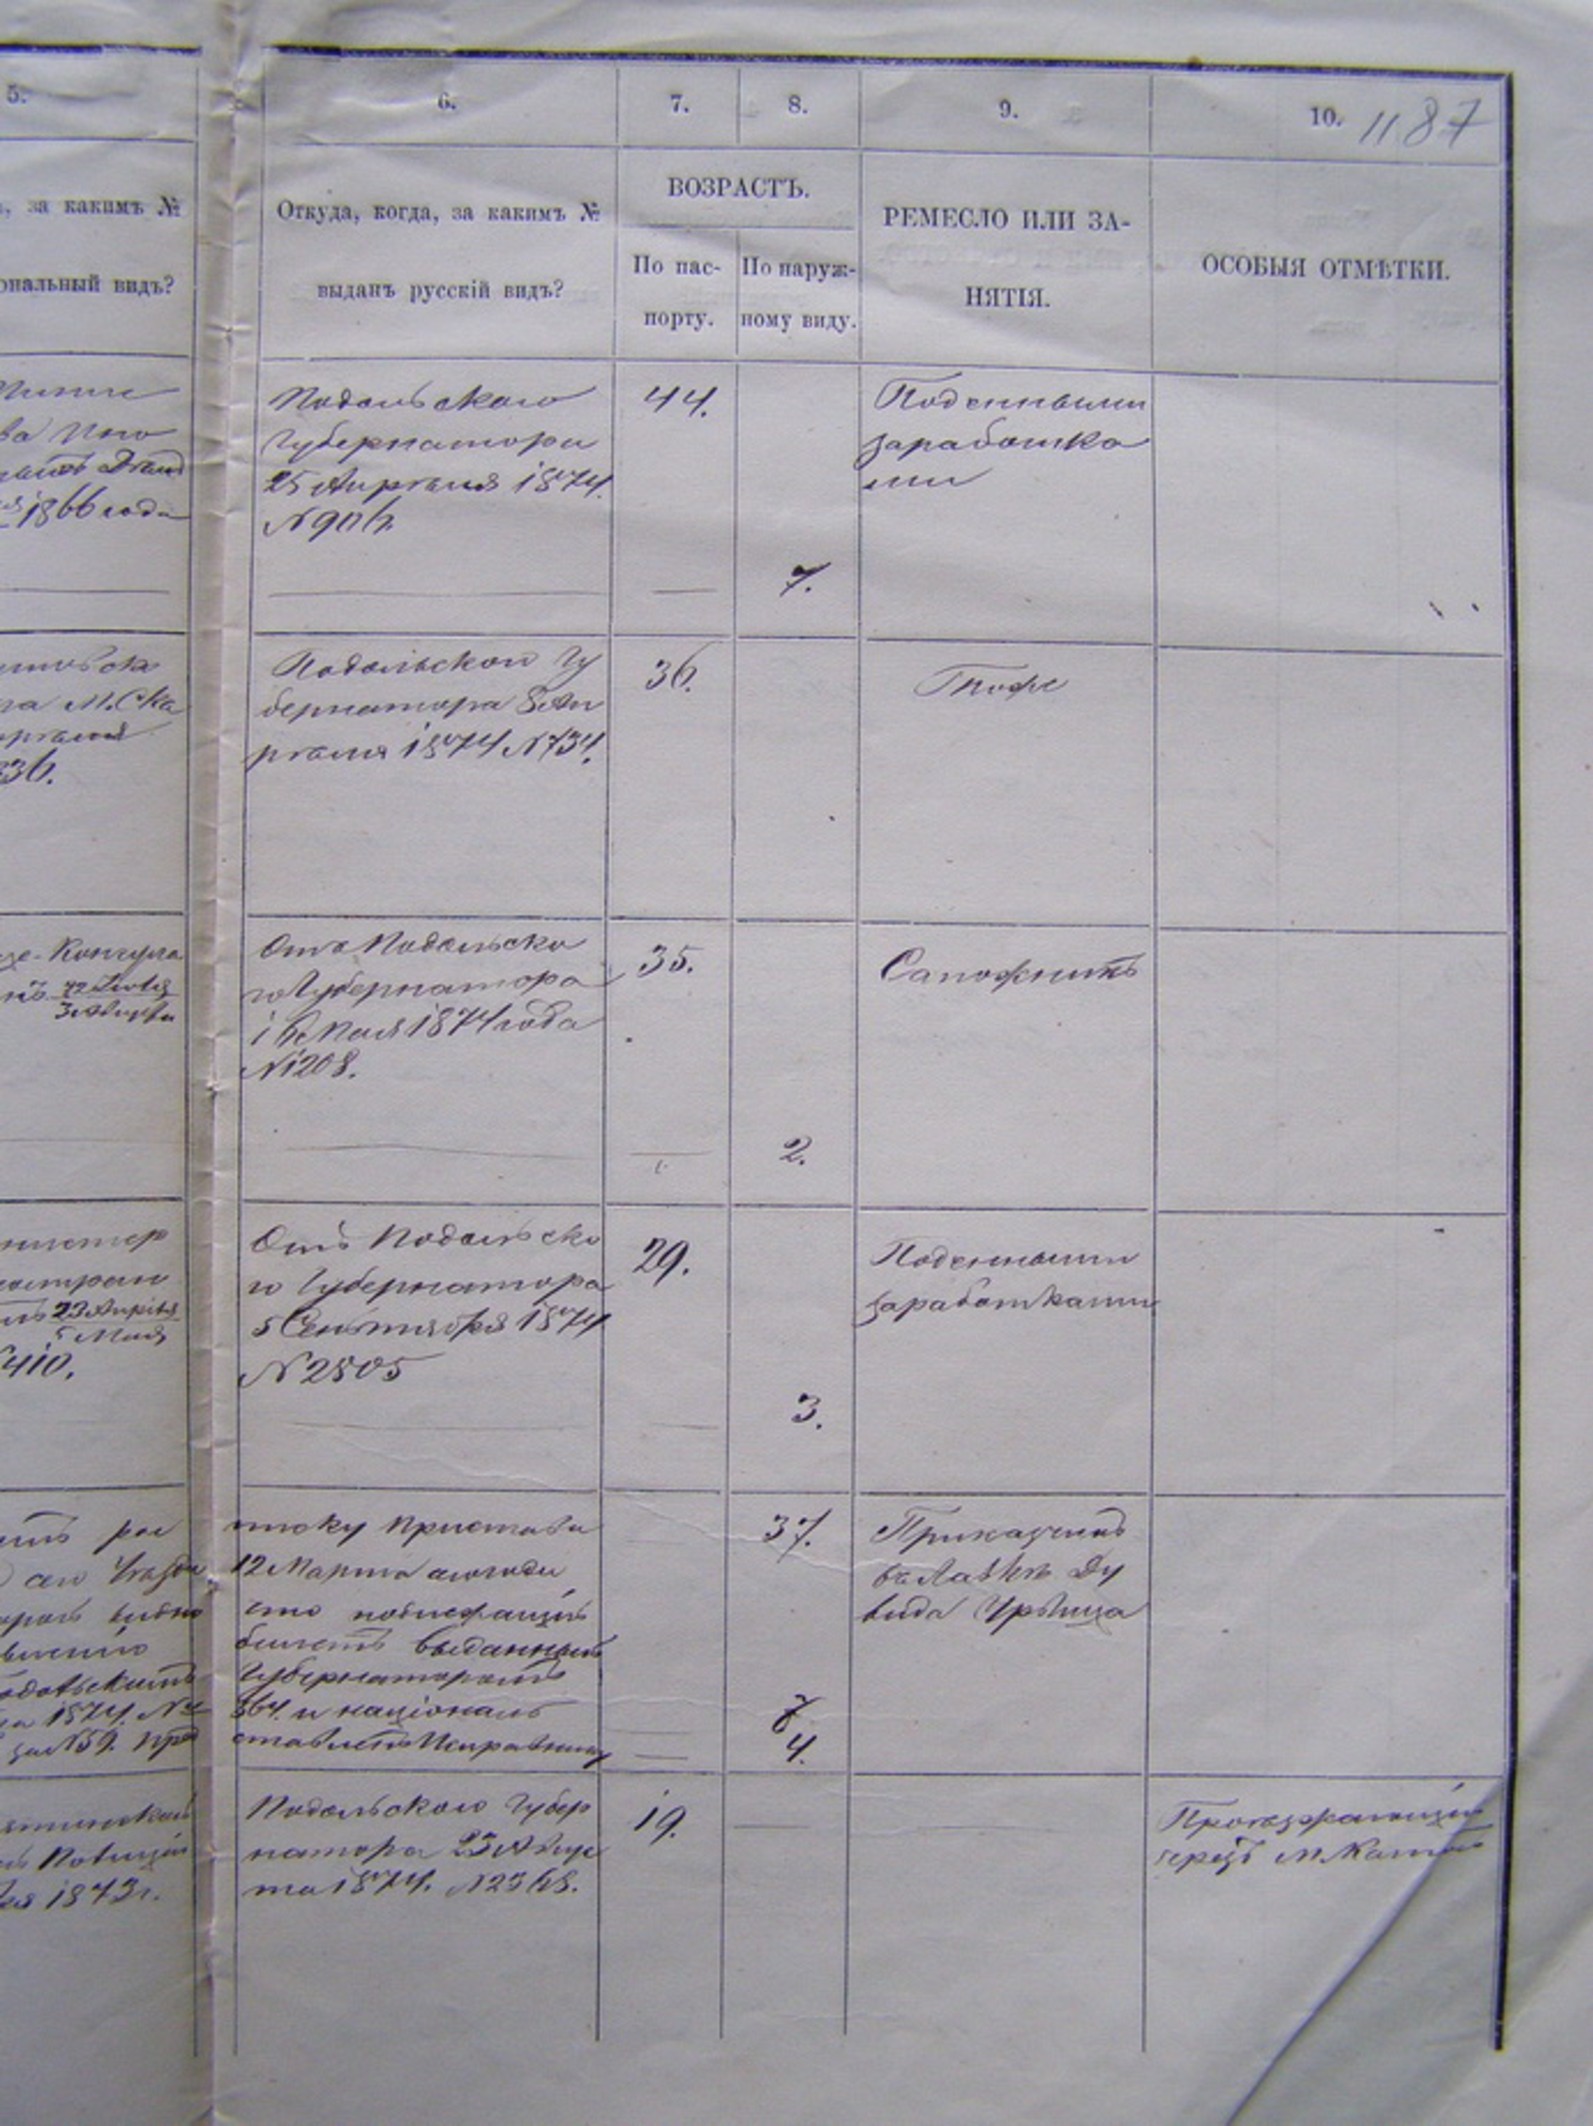 5. 6. 7. 8. 9. 10. 1187
за какимъ №
ональный видъ?
Откуда, когда, за какимъ №
выданъ русскій видъ?
ВОЗРАСТЪ.
По пас-
порту.
По наруж-
ному виду.
РЕМЕСЛО ИЛИ ЗА-
НЯТІЯ.
ОСОБЫЯ ОТМѢТКИ.
1866 года
Подольскаго
Губернатора
25 Апрѣля 1874.
N 906.
44.
7.
Поденными
заработка
ми
ла М. Ска
36.
Подольскаго Гу
бернатора 8 Ап
рѣля 1874 N 734.
36.
Тоже
3 Августа
Отъ Подольска
го Губернатора
16 Мая 1874 года
N 1208.
35.
2.
Сапожникъ
23 Апрѣля
5 Мая
410.
Отъ Подольска
го Губернатора
5 Сентября 1874
N 2805
29.
3.
Поденными
заработками
1874. N
за N 59. пред
Пристава
12 Марта
что
билетъ выданный
Губернаторомъ
364. и націоналъ
ставленъ Исправнику
37.
4.
Прикащикъ
въ лавкѣ Ду
вида
1873 г.
Подольского Губер
натора 23 Авгус
та 1874. N 2368.
19.
Проезжающій
черезъ м.